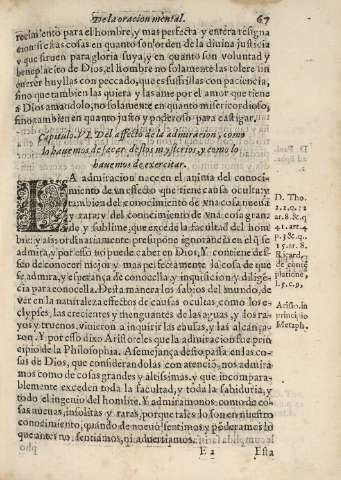 De la oracion mental. 67
recimiento para el hombre, y mas perfecta y entera resigna
cion si estas cosas en quanto son orden de la divina justicia
y que siruen para gloria suya, y en quanto son voluntad y
beneplacito de Dios, el hombre no solamente las tolere sin
querer huyllas con peccado, que es suffrillas con paciencia,
sino que tambien las quiera y las ame por el amor que tiene
a Dios amandolo, no solamente en quanto misericordioso,
sino tambien en quanto justo y poderoso para castigar.
Capitulo. VI. Del affecto de la admiracion, como
lo hauemos de sacar destos mysterios, y como lo
hauemos de exercitar.
LA admiracion nace en el anima del conoci-
miento de vn effecto que tiene causa oculta: y
tambien del conocimiento de vna cosa nueua
y rara: y del conocimiento de vna cosa gran
de y sublime, que excede la facultad del hom
bre: y assi ordinariamente presupone ignorancia en el q̃ se
admira, y por esso no puede caber en Dios, Y contiene des-
seo de conocer mejor y mas perfectamente la cosa de que
se admira, y esperança de conocella, y inquisicion y diligẽ
cia para conocella. Desta manera los sabios del mundo, de
ver en la naturaleza effectos de causas ocultas, como los e-
clypses, las crecientes y menguantes de las aguas, y los ra-
yos y truenos, vinieron a inquirir las causas, y las alcança-
ron. Y por esso dixo Aristoteles que la admiracion fue prin
cipio de la Philosophia. A semejança desto passa en las co-
sas de Dios, que considerandolas con atencio, nos admira
mos como de cosas grandes y altissimas, y que incompara-
blemente exceden toda la facultad, y toda la sabiduria, y
todo el ingenio del hombre. Y admiramonos como de co-
sas nueuas, insolitas y raras, porque tales lo son en nuestro
conocimiento, quando de nueuo sentimos y põderamos lo
que antes no sentiamos, ni aduertiamos.
E 2 Esta
D. Tho.
1. 2. q.
ar. 8. & q
41. art. 4
p. 3. & q.
15. ar. 8.
Aristo. in
principio
Metaph.